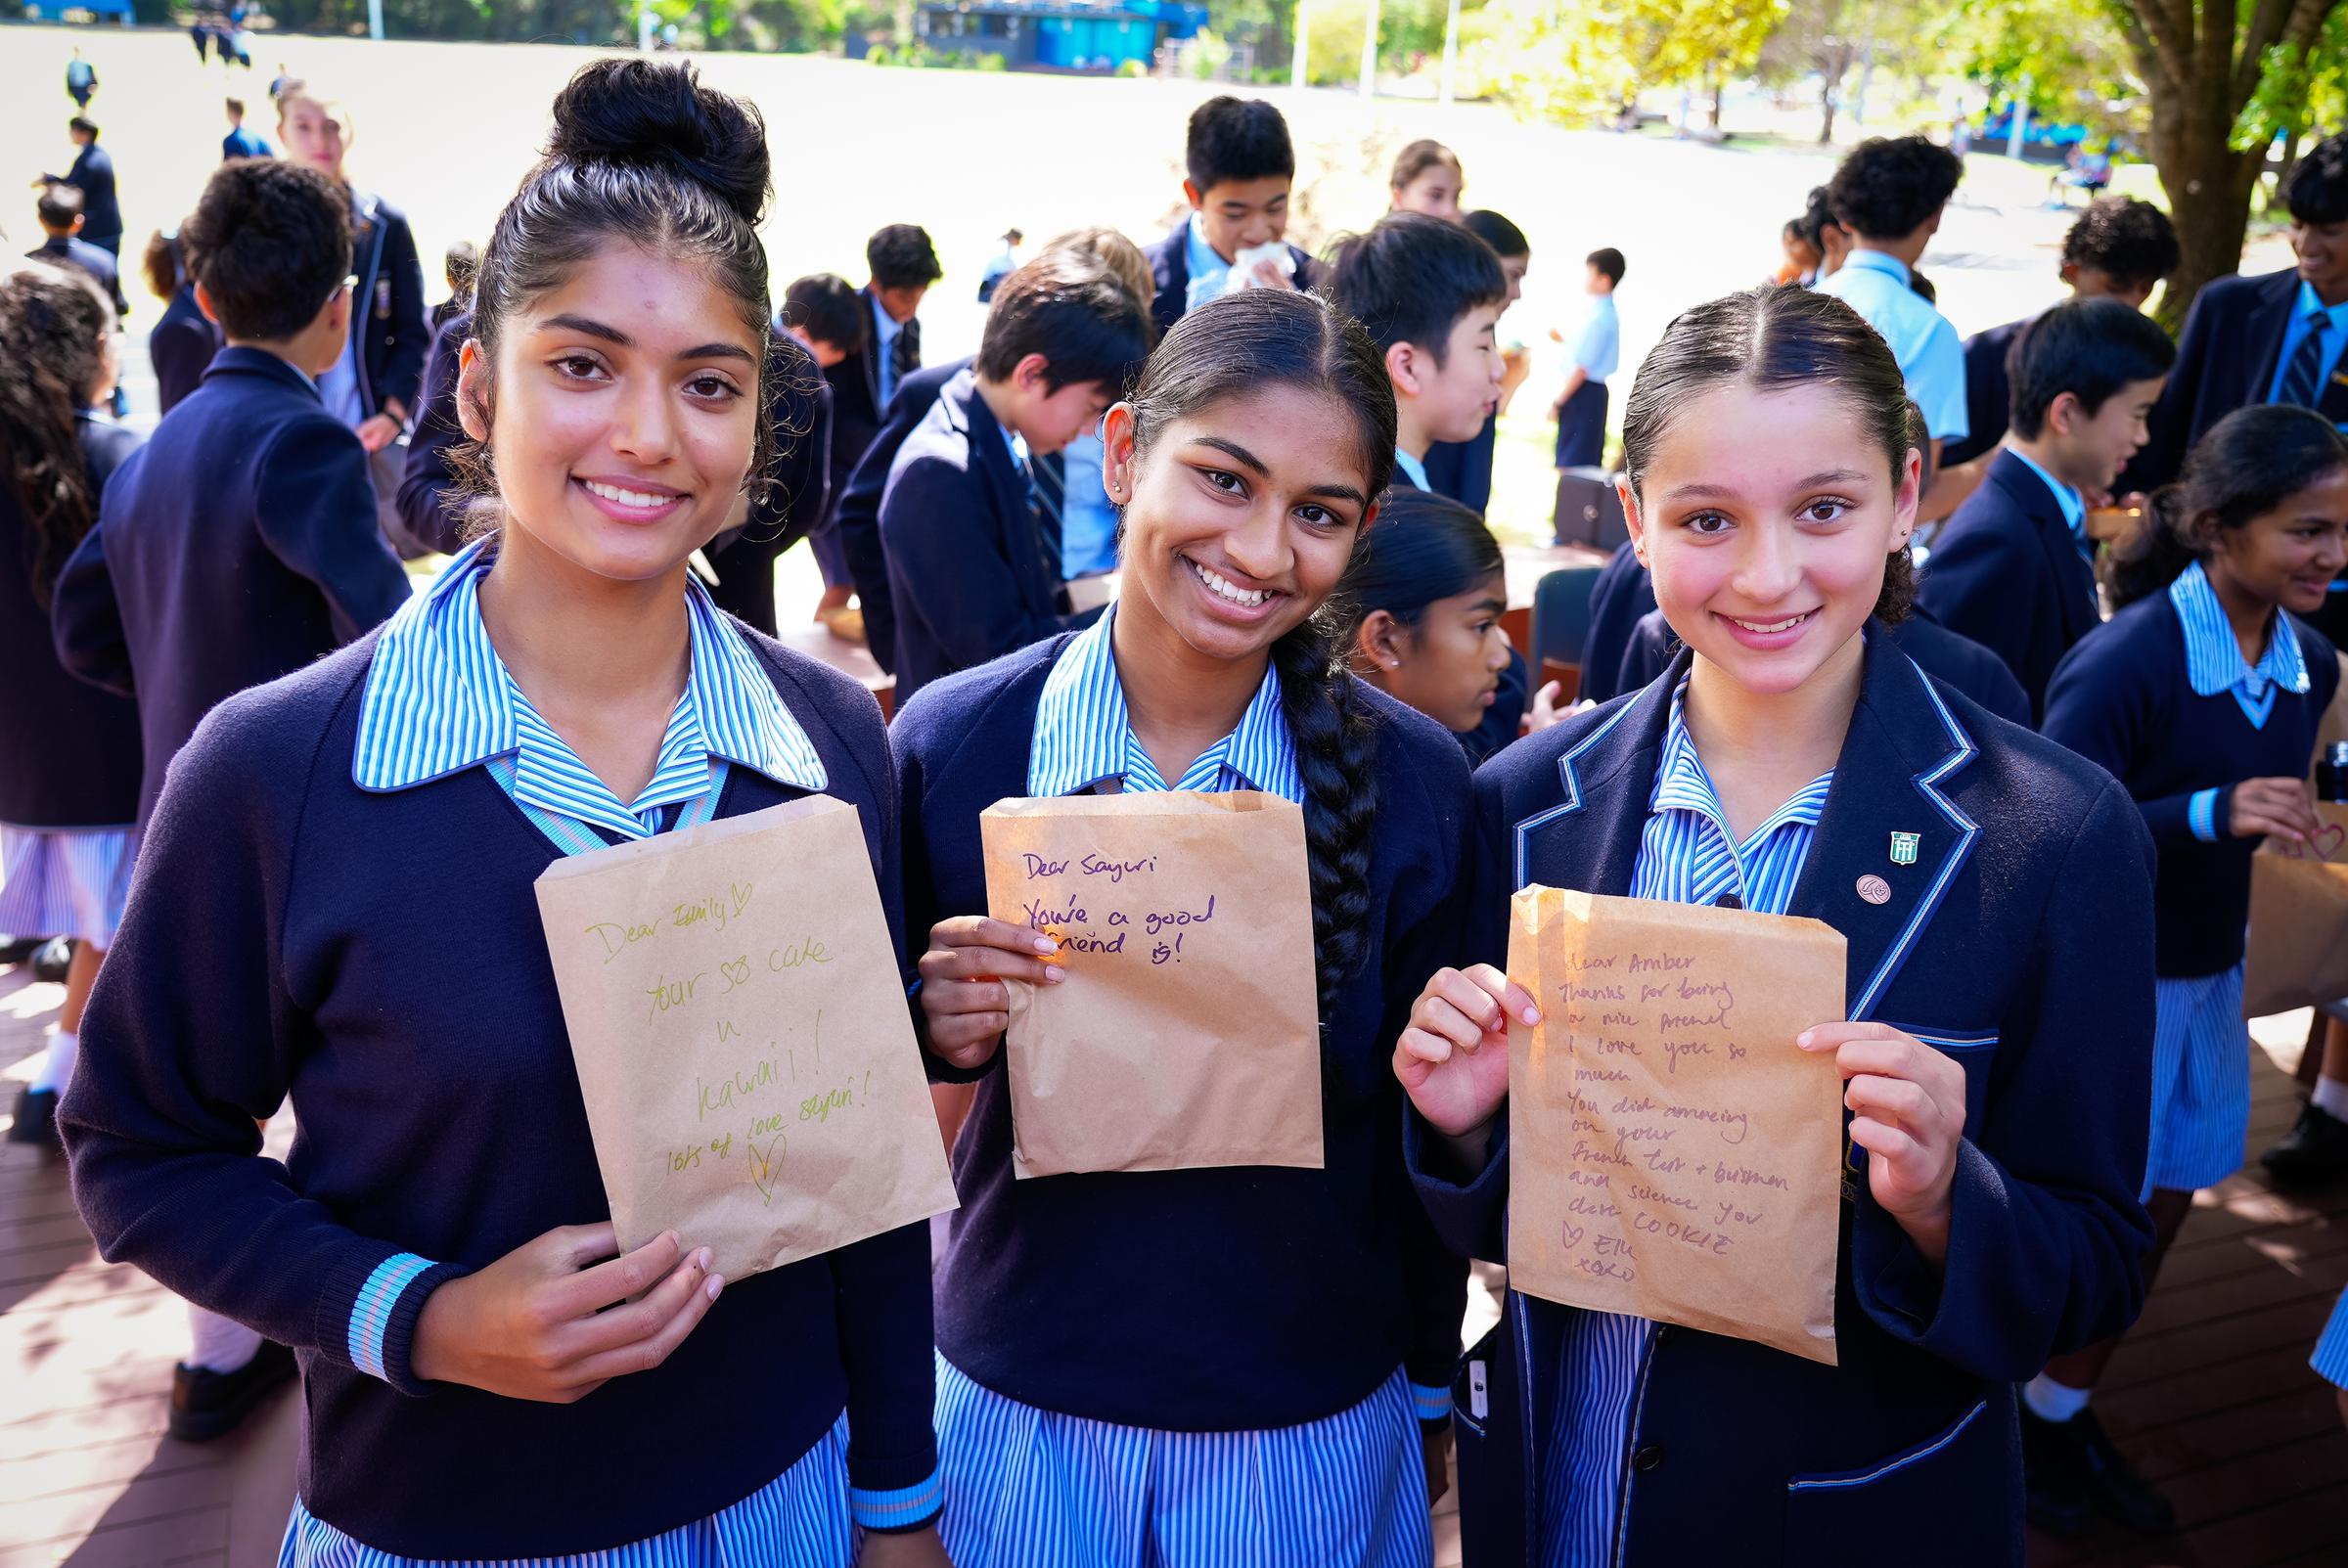 Dear Emily
Your so cute
u
kawaii!
lots of love sayuri!
Dear Sayuri
You're a good
friend is!
Dear Amber
Thanks for being
a nice friend
I love you so
much
You did amazing
on your
French test +
and science you
COOKIE
xoxo